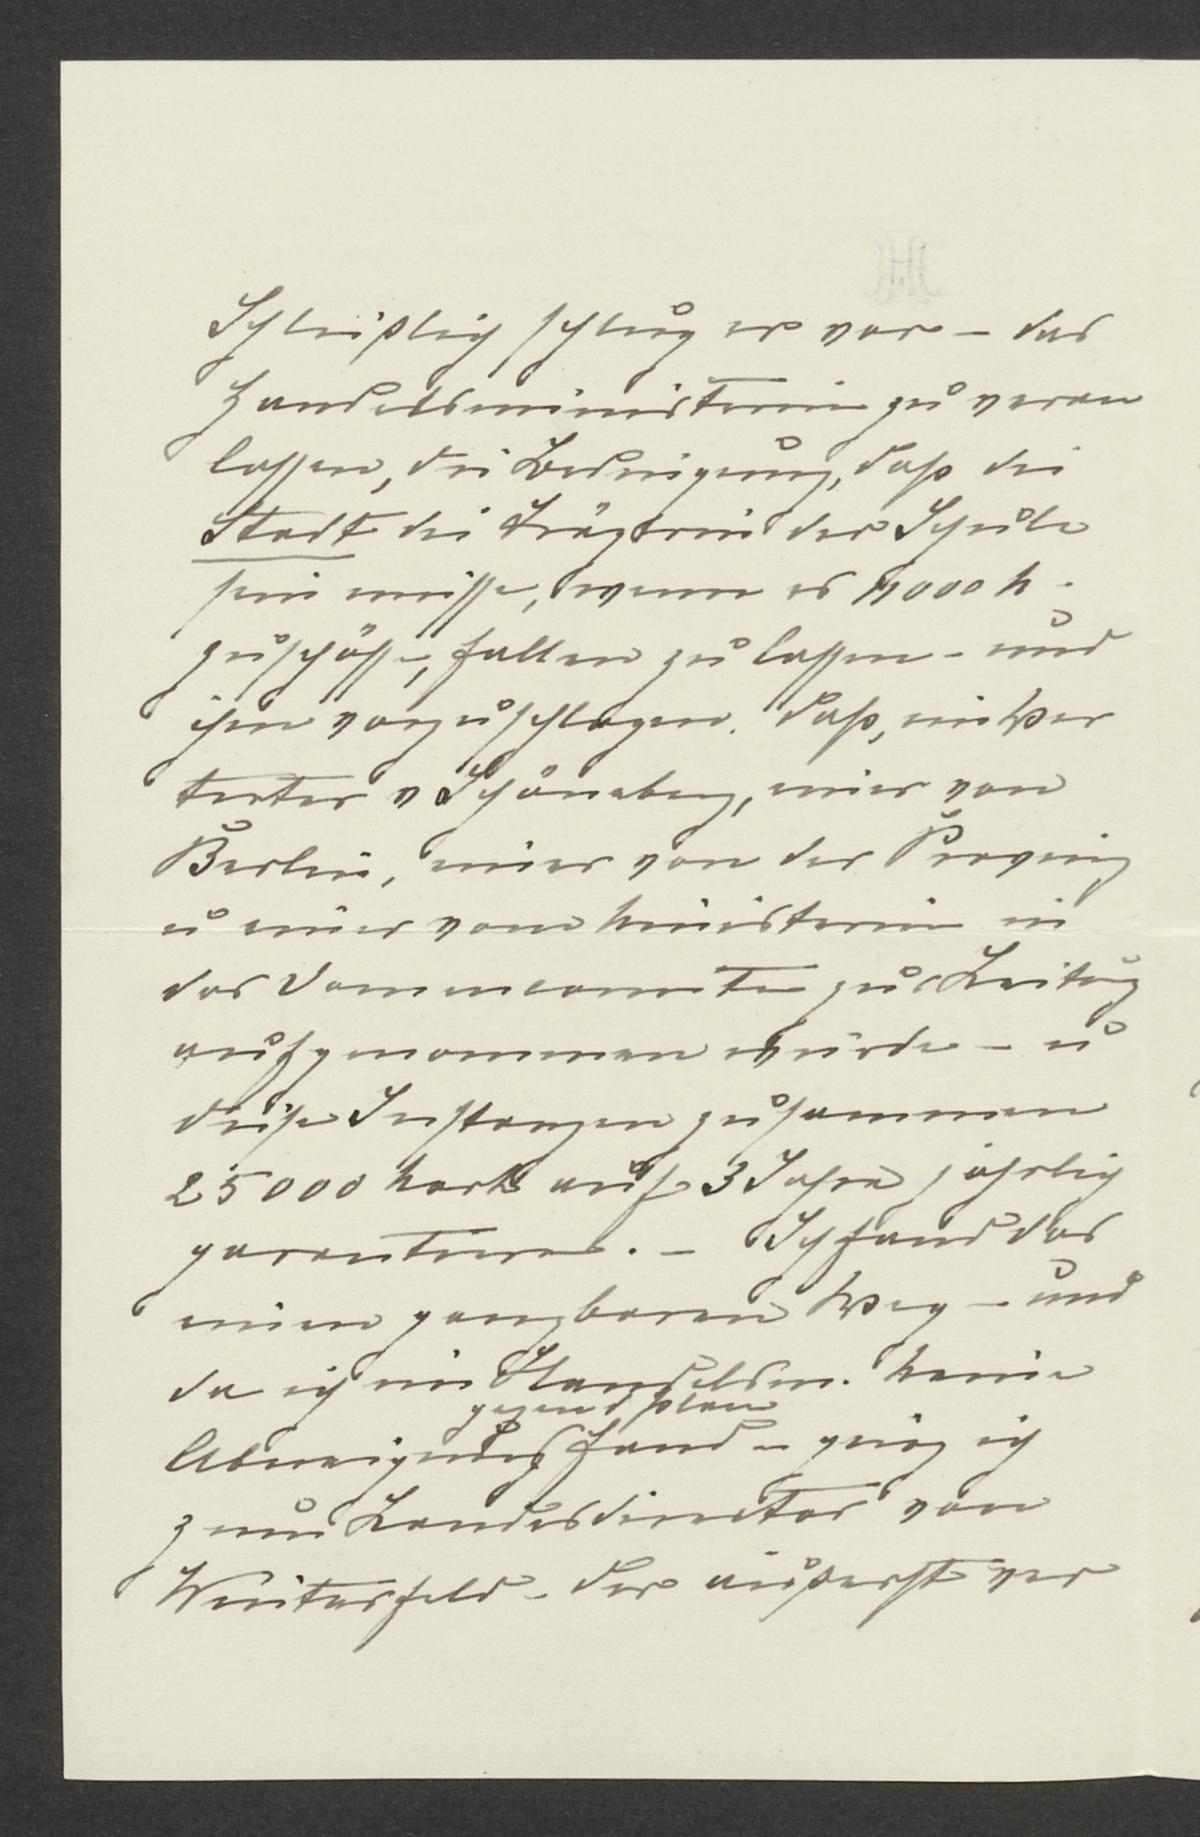 Schließlich schlug er vor – das
Handelsministerium zu veran
lassen, die Bedingung, daß die
Stadt die Trägerin der Schule
sein müsse, wenn es 4000 M.
zuschösse, fallen zu lassen – und
ihm vorzuschlagen, daß, ein Ver
treter v Schöneberg, einer von
Berlin, einer von der Provinz
u einer vom Ministerium in
das Damencomitee zur Leitung
aufgenommen würde – u
diese Instanzen zusammen
25000 Mark auf 3 Jahre jährlich
garantieren. – Ich fand das
einen gangbaren Weg – und
da ich im Handelsm. keine
gegen d. Plan
Abneigung fand – ging ich
zum Landesdirector von
Winterfeld – der äußerst ver